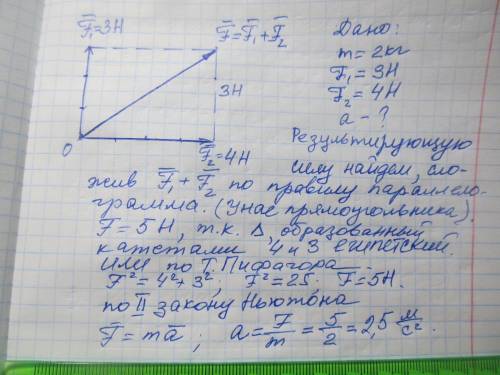 F̅₁=3Н
F̅=F̅₁+F̅₂
3Н
O
F̅₂=4Н
Дано:
m=2кг
F₁=3Н
F₂=4Н
a-?
Результирующую
силу найдём, сло-
жив F̅₁+F̅₂ по правилу параллело-
грамма. (У нас прямоугольника).
F=5Н, т.к. Δ, образованный
катетами 4 и 3 египетский.
Или по Т. Пифагора
F²=4²+3², F²=25; F=5Н.
по II закону Ньютона
F̅=ma̅; a=F/m=5/2=2,5 м/с².